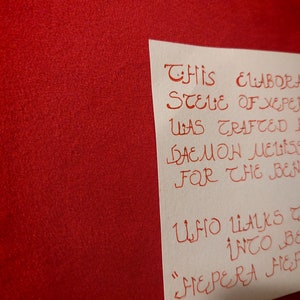 THIS ELABORA
STELE OF XEPE
WAS CRAFTED
DAEMON MELISS
FOR THE BEN

WHO WALKS T
INTO BE
"HEPERA HEF